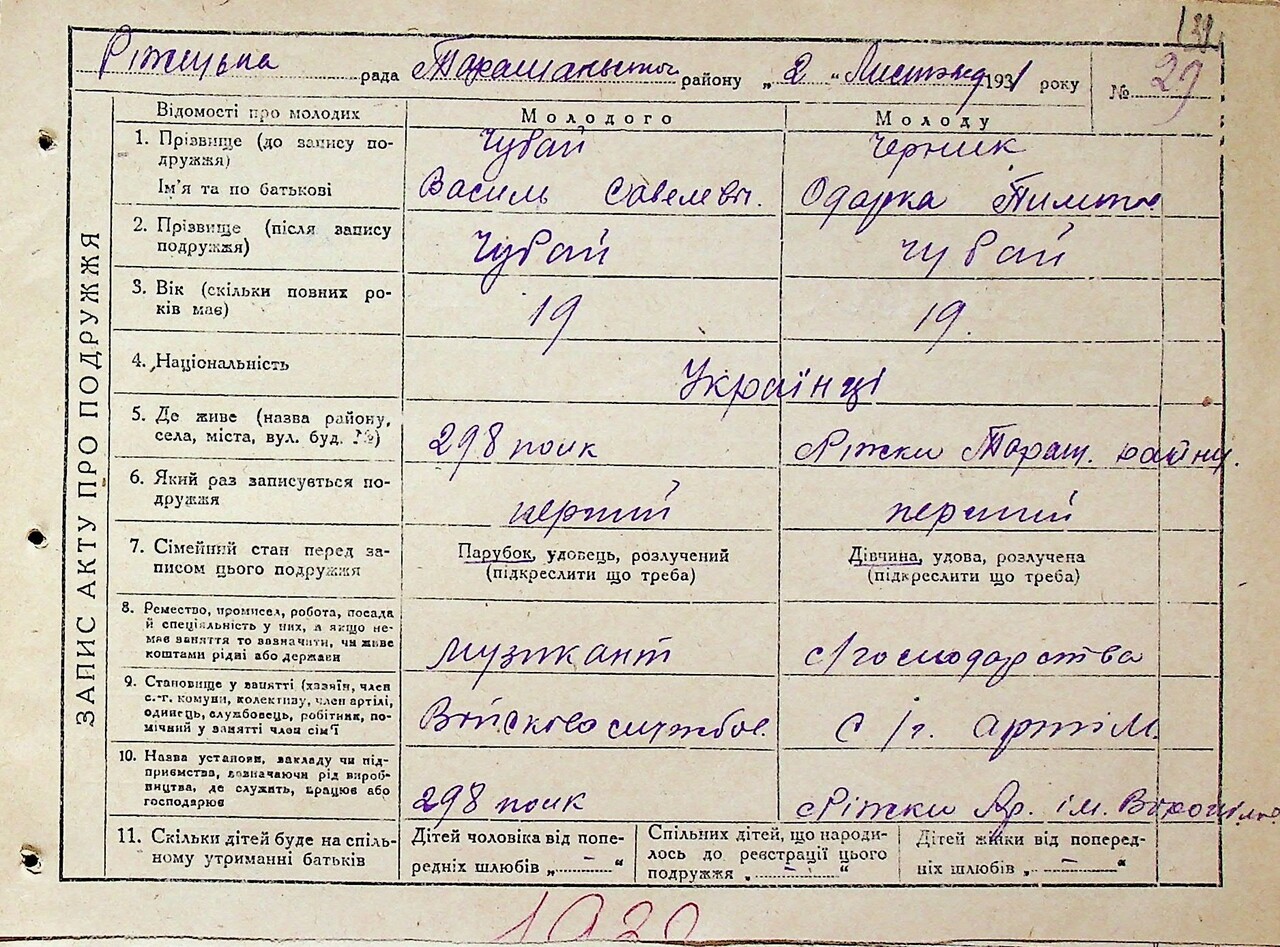 39
Ріжецька рада Таращанського району „2“ Листопад 1931 року № 29
ЗАПИС АКТУ ПРО ПОДРУЖЖЯ
Відомості про молодих
Молодого
Молоду
1. Прізвище (до запису по-
дружжя)
Чубай
Черник
Ім'я та по батькові
Василь Савелевы.
Одарка Тимоф.
2. Прізвище (після запису
подружжя)
Чубай
Чубай
3. Вік (скільки повних ро-
ків має)
19
19.
4. Національність
Українці
5. Де живе (назва району,
села, міста, вул. буд. №)
298 полк
Ріжки Таращ. району.
6. Який раз записується по-
дружжя
перший
перший
7. Сімейний стан перед за-
писом цього подружжя
Парубок, удовець, розлучений
(підкреслити що треба)
Дівчина, удова, розлучена
(підкреслити що треба)
8. Ремество, промисел, робота, посада
й спеціяльність у них, а якщо не-
має заняття то зазначити, чи живе
коштами рідні або держави
музикант
с/господарства
9. Становище у занятті (хазяїн, член
с.-г. комуни, колективу, член артілі,
одинець, службовець, робітник, по-
мічний у занятті член сім'ї
Войсковослужбов.
с/г. артіл.
10. Назва установи, закладу чи під-
приємства, зазначаючи рід вироб-
ництва, де служить, працює або
господарює
298 полк
Ріжки Ар. ім. Ворошілова
11. Скільки дітей буде на спіль-
ному утриманні батьків
Дітей чоловіка від попе-
редніх шлюбів „ — “
Спільних дітей, що народи-
лось до реєстрації цього
подружжя „ — “
Дітей жінки від поперед-
ніх шлюбів „ — “